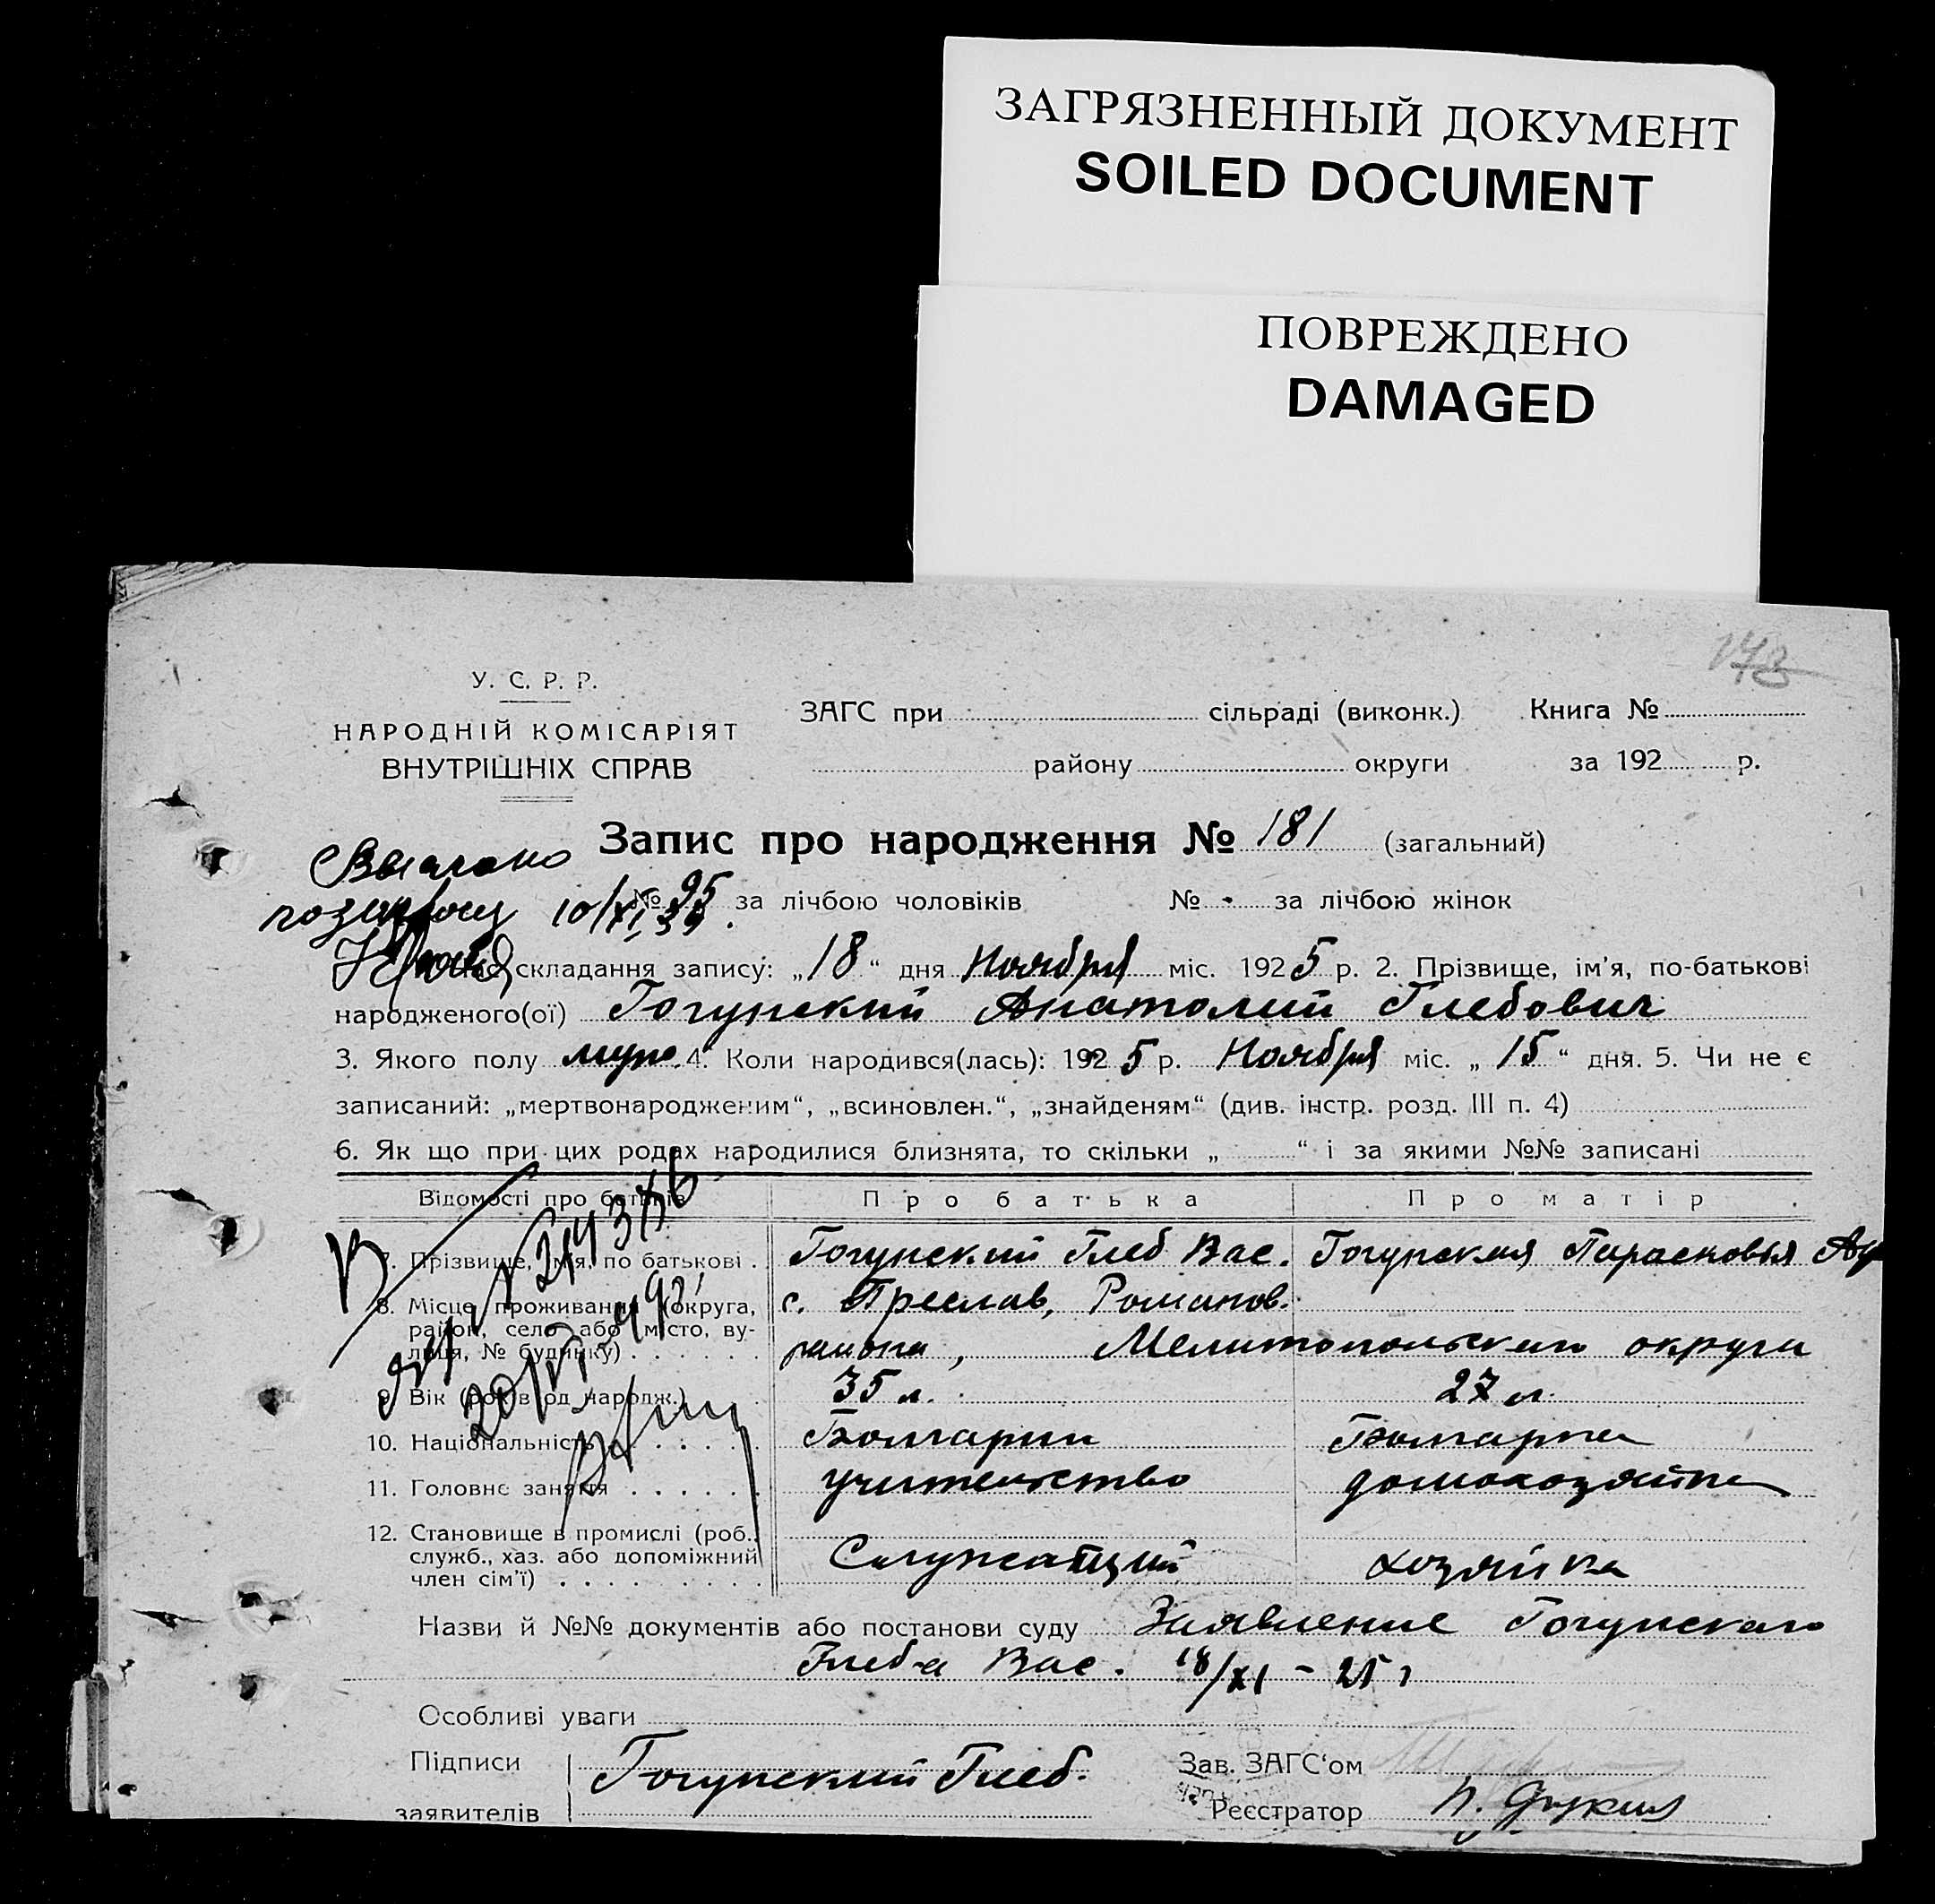 ЗАГРЯЗНЕННЫЙ ДОКУМЕНТ
SOILED DOCUMENT
ПОВРЕЖДЕНО
DAMAGED
У. С. Р. Р.
НАРОДНІЙ КОМІСАРІЯТ
ВНУТРІШНІХ СПРАВ
ЗАГС при сільраді (виконк.) Книга №
району округи за 192 р.
Запис про народження № 181 (загальний)
№ 95 за лічбою чоловіків № - за лічбою жінок
складання запису: „18“ дня Ноября міс. 1925 р. 2. Прізвище, ім'я, по-батькові
народженого(ої) Гогунский Анатолий Глебович
3. Якого полу муж. 4. Коли народився(лась): 1925 р. Ноября міс. „15“ дня. 5. Чи не є
записаний: „мертвонародженим“, „всиновлен.“, „знайденям“ (див. інстр. розд. III п. 4)
6. Як що при цих родах народилися близнята, то скільки „ “ і за якими №№ записані
Відомості про батьків Про батька Про матір
7. Прізвище, ім'я, по батькові . Гогунский Глеб Вас. Гогунская Парасковья
8. Місце проживання (округа, с. Преслав, Романов.
район, село або місто, ву-
лиця, № будинку) . . . . . . района, Мелитопольского округа
9. Вік (років од народж.) 35 л. 27 л.
10. Національність . . . . . . Болгарин Болгарка
11. Головне заняття . . . . . . учительство домохозяйка
12. Становище в промислі (роб.,
служб., хаз. або допоміжний Служащий хозяйка
член сім'ї) . . . . . . . . .
Назви й №№ документів або постанови суду Заявление Гогунского
Глеба Вас. 18/XI - 25 г
Особливі уваги
Підписи Гогунский Глеб. Зав. ЗАГС'ом
заявителів Реєстратор